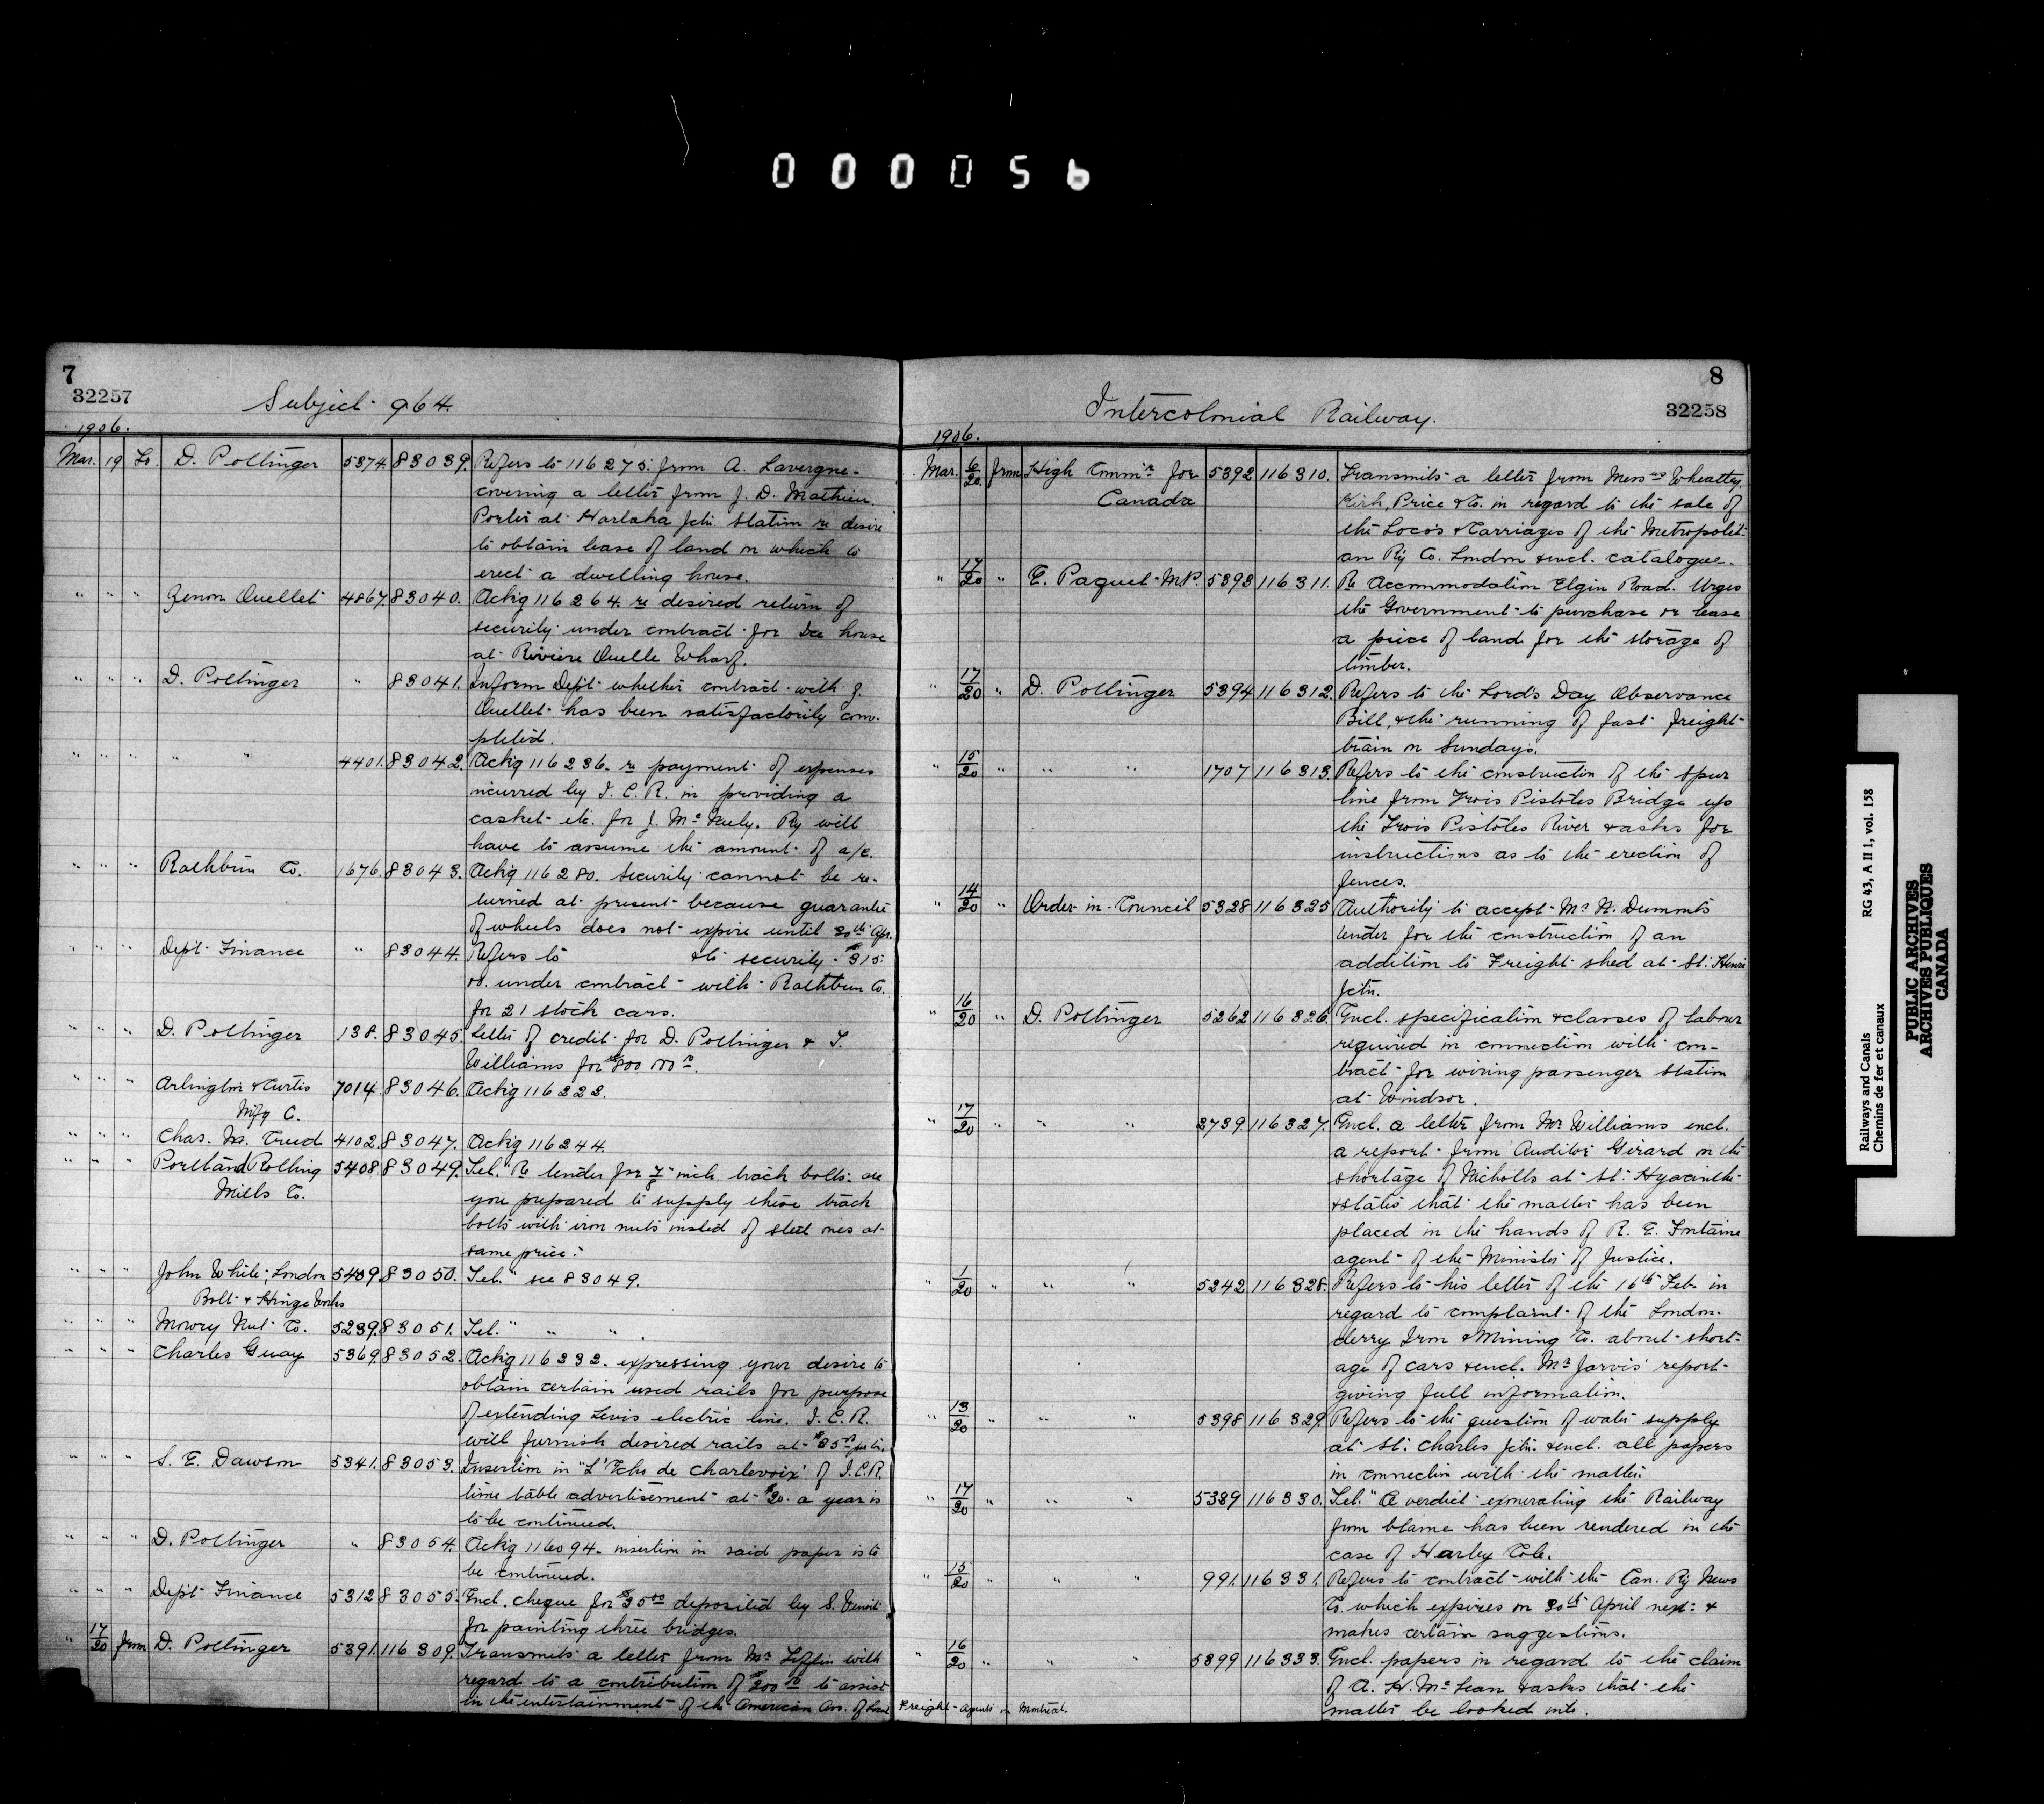 000056
7
32257
Subject 964.
1906.
Mar. 19 To. D. Pottinger 5374. 83039. Refers to 116275. from A. Lavergne
covering a letter from J. D. Mathieu
Porter at Harlaka Jctn Station re desire
to obtain lease of land on which to
erect a dwelling house.
" " " Zenon Ouellet 4867. 83040. Ackg 116264. re desired return of
security under contract for Ice house
at Riviere Ouelle Wharf.
" " " D. Pottinger " 83041. Inform Dept whether contract with Z.
Ouellet has been satisfactorily com-
pleted.
" " " " 4401. 83042. Ackg 116236. re payment of expenses
incurred by I. C. R. in providing a
casket etc. for J. McNuly. Ry will
have to assume the amount of a/c.
" " " Rathbun Co. 1676. 83043. Ackg 116280. Security cannot be re-
turned at present because guarantee
of wheels does not expire until 30th Apr.
" " " Dept Finance " 83044. Refers to security $315
00. under contract with Rathbun Co.
for 21 stock cars.
" " " D. Pottinger 138. 83045. Letter of credit for D. Pottinger & T.
Williams for $800 000.
" " " Arlington & Curtis 7014. 83046. Ackg 116222.
Mfg C.
" " " Chas. M. 4102. 83047. Ackg 116244.
" " " Portland Rolling 5408. 83049. Tel. "Re tender for 7/8 inch track bolts. are
Mills Co.
you prepared to supply these track
bolts with iron nuts insted of steel ones at
same price."
" " " John White, London 5409. 83050. Tel. " see 83049.
Bolt & Hinge Works
" " " Mowry Nut Co. 5239. 83051. Tel. " " " .
" " " Charles Guay 5369. 83052. Ackg 116232. expressing your desire to
obtain certain used rails for purpose
of extending Levis electric line. I. C. R.
will furnish desired rails at $25.00 per ton.
" " " S. E. Dawson 5341. 83053. Insertion in "L'Echo de Charlevoix" of I.C.R.
time table advertisement at $20. a year is
to be continued.
" " " D. Pottinger " 83054. Ackg 116094. insertion in said paper is to
be continued.
" " " Dept Finance 5312 83055. Encl. cheque for $35.00 deposited by S.
for painting three bridges.
" 17/20 from D. Pottinger 5391. 116309. Transmits a letter from Mr. with
regard to a contribution of $200.00 to assist
in the entertainment of the American Ass. of Local
Freight Agents in Montreal.
8
32258
Intercolonial Railway.
1906.
Mar. 6/20. from High Commr for 5392 116310. Transmits a letter from Messrs Wheatley,
Canada
Kirk, Price & Co. in regard to the sale of
the Locos & Carriages of the Metropolit-
an Ry Co. London & encl. catalogue.
" 17/20 " E. Paquet M.P. 5393 116311. Re Accommodation Elgin Road. Urges
the Government to purchase or lease
a piece of land for the storage of
timber.
" 17/20 " D. Pottinger 5394 116312 Refers to the Lord's Day Observance
Bill, & the running of fast freight
train on Sundays.
" 15/20 " " " 1707 116313. Refers to the construction of the spur
line from Trois Pistoles Bridge up
the Trois Pistoles River & asks for
instructions as to the erection of
fences.
" 14/20 " Order-in-Council 5328 116325 Authority to accept Mr N. Dumont's
tender for the construction of an
addition to Freight shed at St. Henri
Jctn.
16/20 " D. Pottinger 5262 116326. Encl. specification & classes of labour
required in connection with con-
tract for wiring passenger station
at Windsor.
" 17/20 " " " 3739. 116327. Encl. a letter from Mr Williams encl.
a report from Auditor Girard on the
shortage of Nicholls at St. Hyacinthe
& states that the matter has been
placed in the hands of R. E. Fontaine
agent of the Minister of Justice.
" 1/20 " " " 5242 116328. Refers to his letter of the 16th Feb. in
regard to complaint of the London-
derry Iron & Mining Co. about short-
age of cars & encl. Mr Jarvis' report
giving full information.
" 13/20 " " " 5398 116329. Refers to the question of water supply
at St. Charles Jctn. & encl. all papers
in connection with the matter.
" 17/20 " " " 5389 116330. Tel. "A verdict exonerating the Railway
from blame has been rendered in the
case of Harley Cole.
" 15/20 " " " 991. 116331. Refers to contract with the Can. Ry News
Co. which expires on 30th April next &
makes certain suggestions.
" 16/20 " " " 5399 116333. Encl. papers in regard to the claim
of A. H. McLean & asks that the
matter be looked into.
Railways and Canals RG 43, A II 1, vol. 158
Chemins de fer et canaux
PUBLIC ARCHIVES
ARCHIVES PUBLIQUES
CANADA